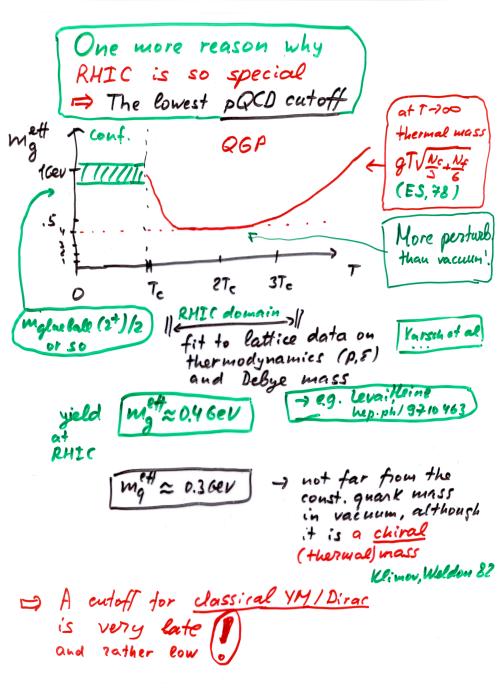 One more reason why
RHIC is so special
⇒ The lowest pQCD cutoff
m_g^eff
conf.
QGP
1GeV
.5
.4
.3
.2
.1
0
T_c
2T_c
3T_c
T
at T→∞
thermal mass
gT√(N_c/3 + N_f/6)
(ES, 78)
More perturb
than vacuum!
m glueball (2⁺)/2
or so
RHIC domain
fit to lattice data on
thermodynamics (p, ε)
and Debye mass
Karsch et al
...
yield
at
RHIC
m_g^eff ≈ 0.4 GeV
→ e.g. Levai, Heinz
hep-ph/9710463
m_q^eff ≈ 0.3 GeV
→ not far from the
const. quark mass
in vacuum, although
it is a chiral
(thermal) mass
Klimov, Weldon 82
⇒ A cutoff for classical YM/Dirac
is very late
and rather low !